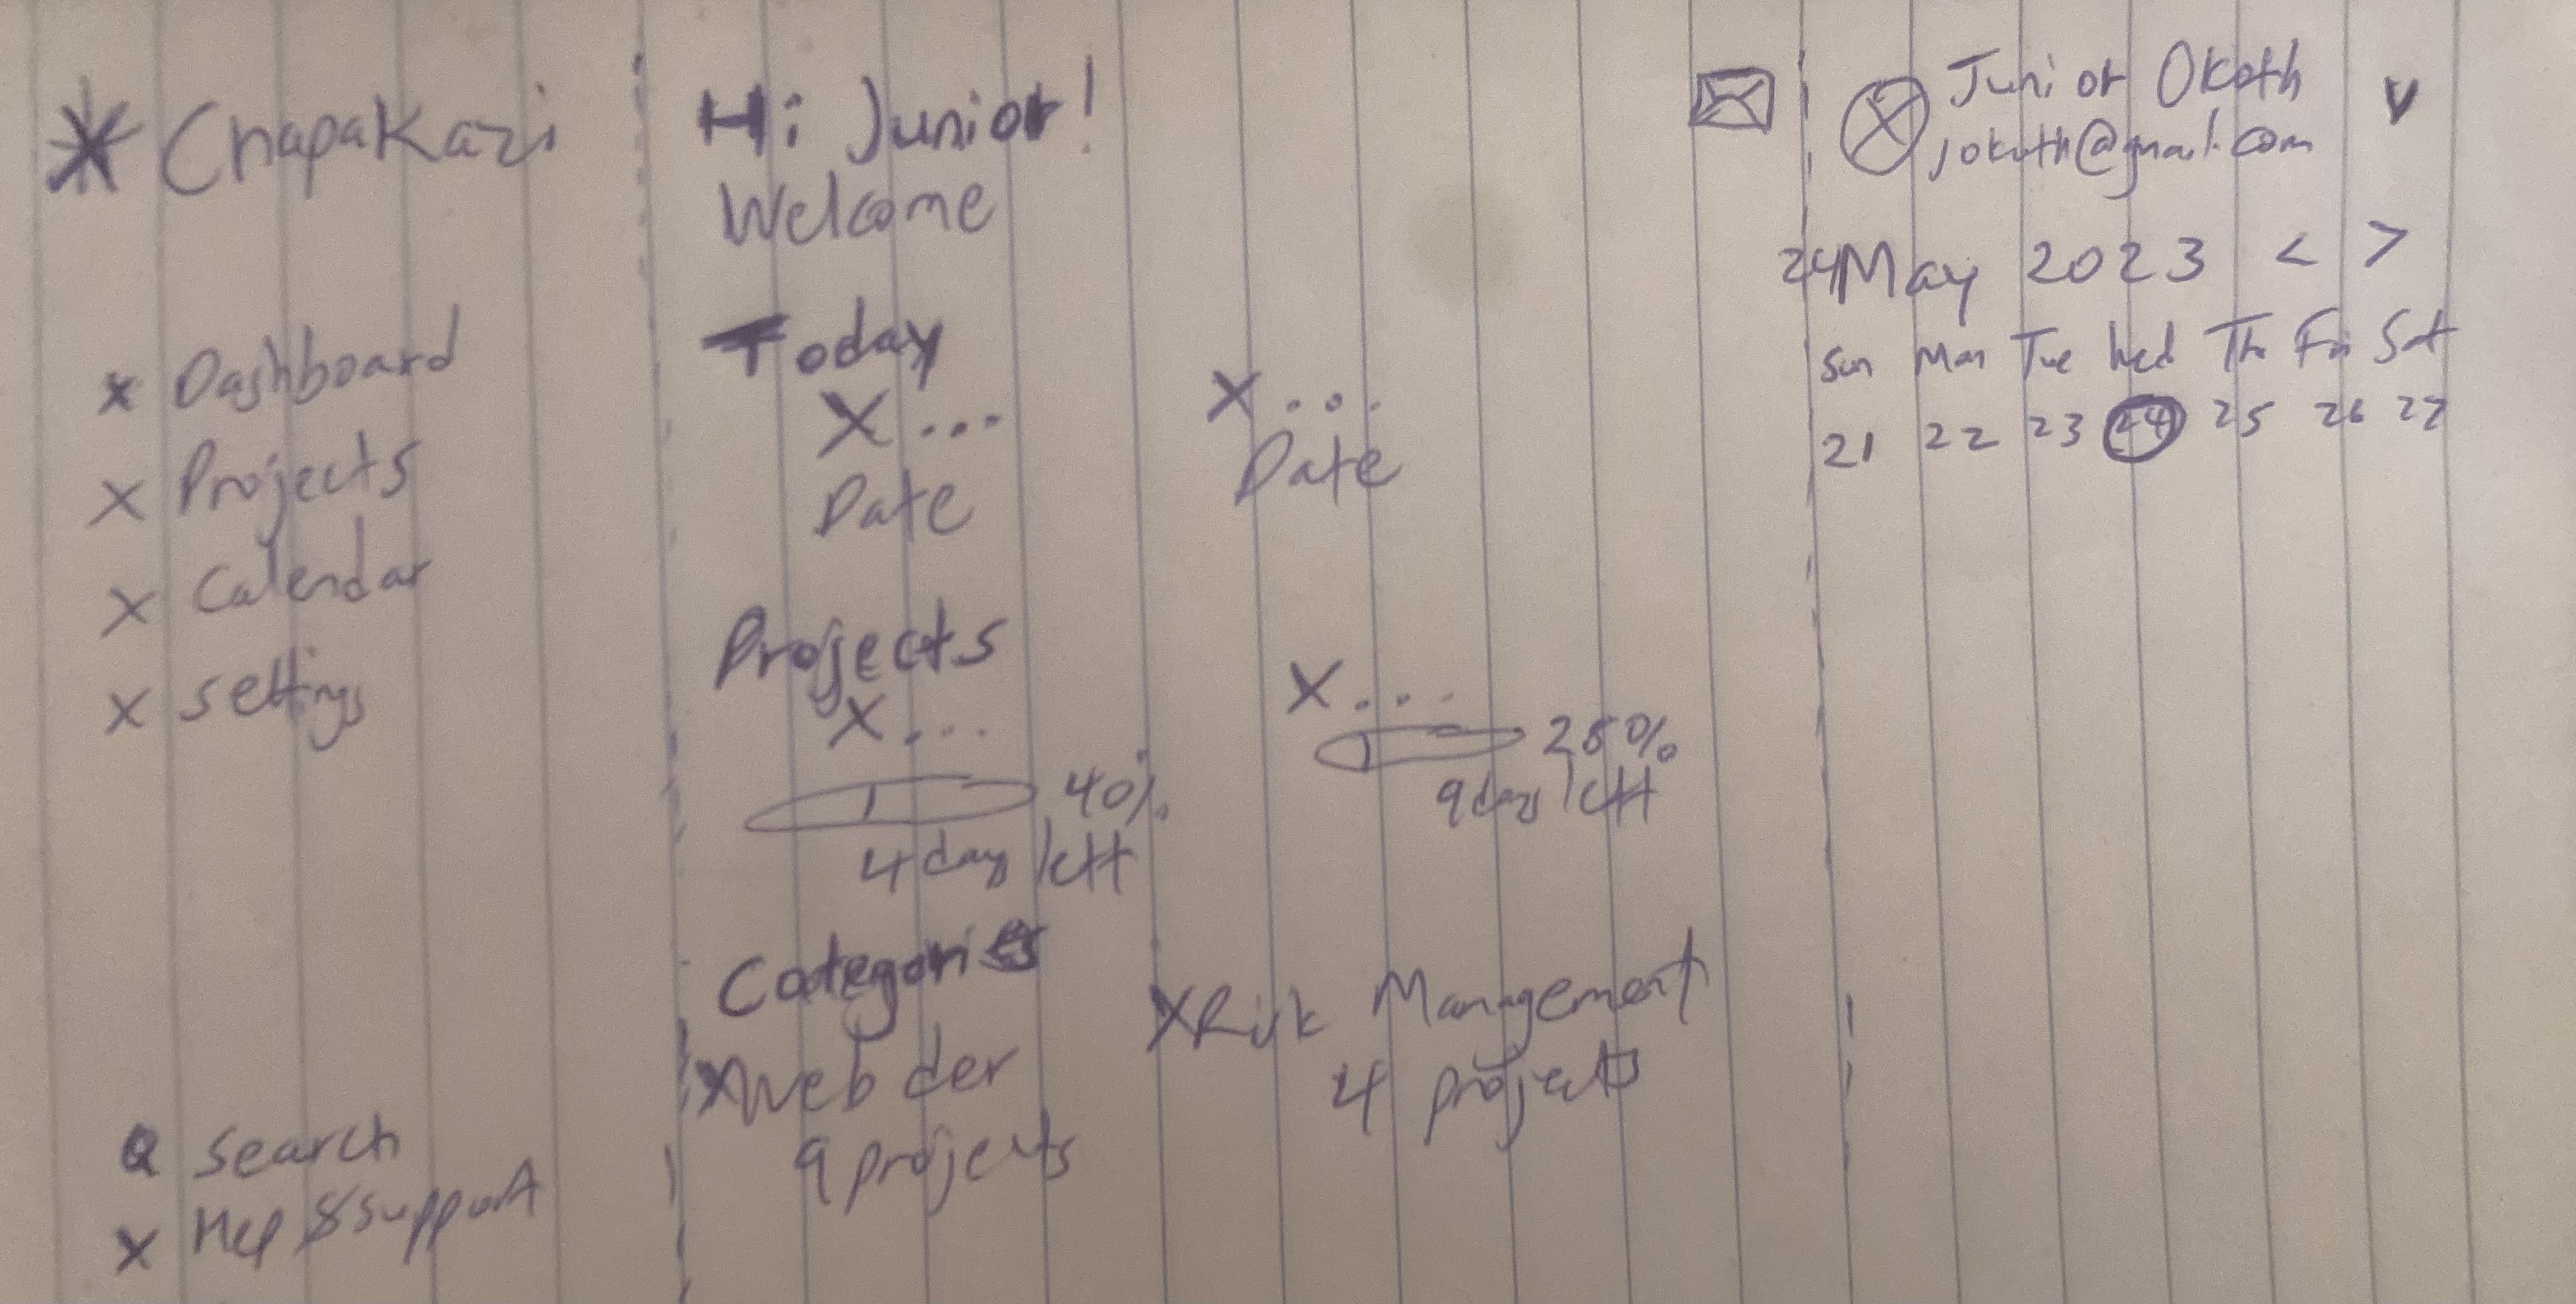 ChapaKazi
Dashboard
Projects
Calendar
Settings
Search
Help & support
Hi Junior!
Welcome
Today
X...
Date
X...
Date
Projects
X...
40%
4 day left
X...
25%
9 day left
Categories
Web dev
9 projects
Risk Management
4 projects
Junior Okoth
jokoth@gmail.com
24 May 2023 < >
Sun Mon Tue Wed Th Fri Sat
21 22 23 24 25 26 27